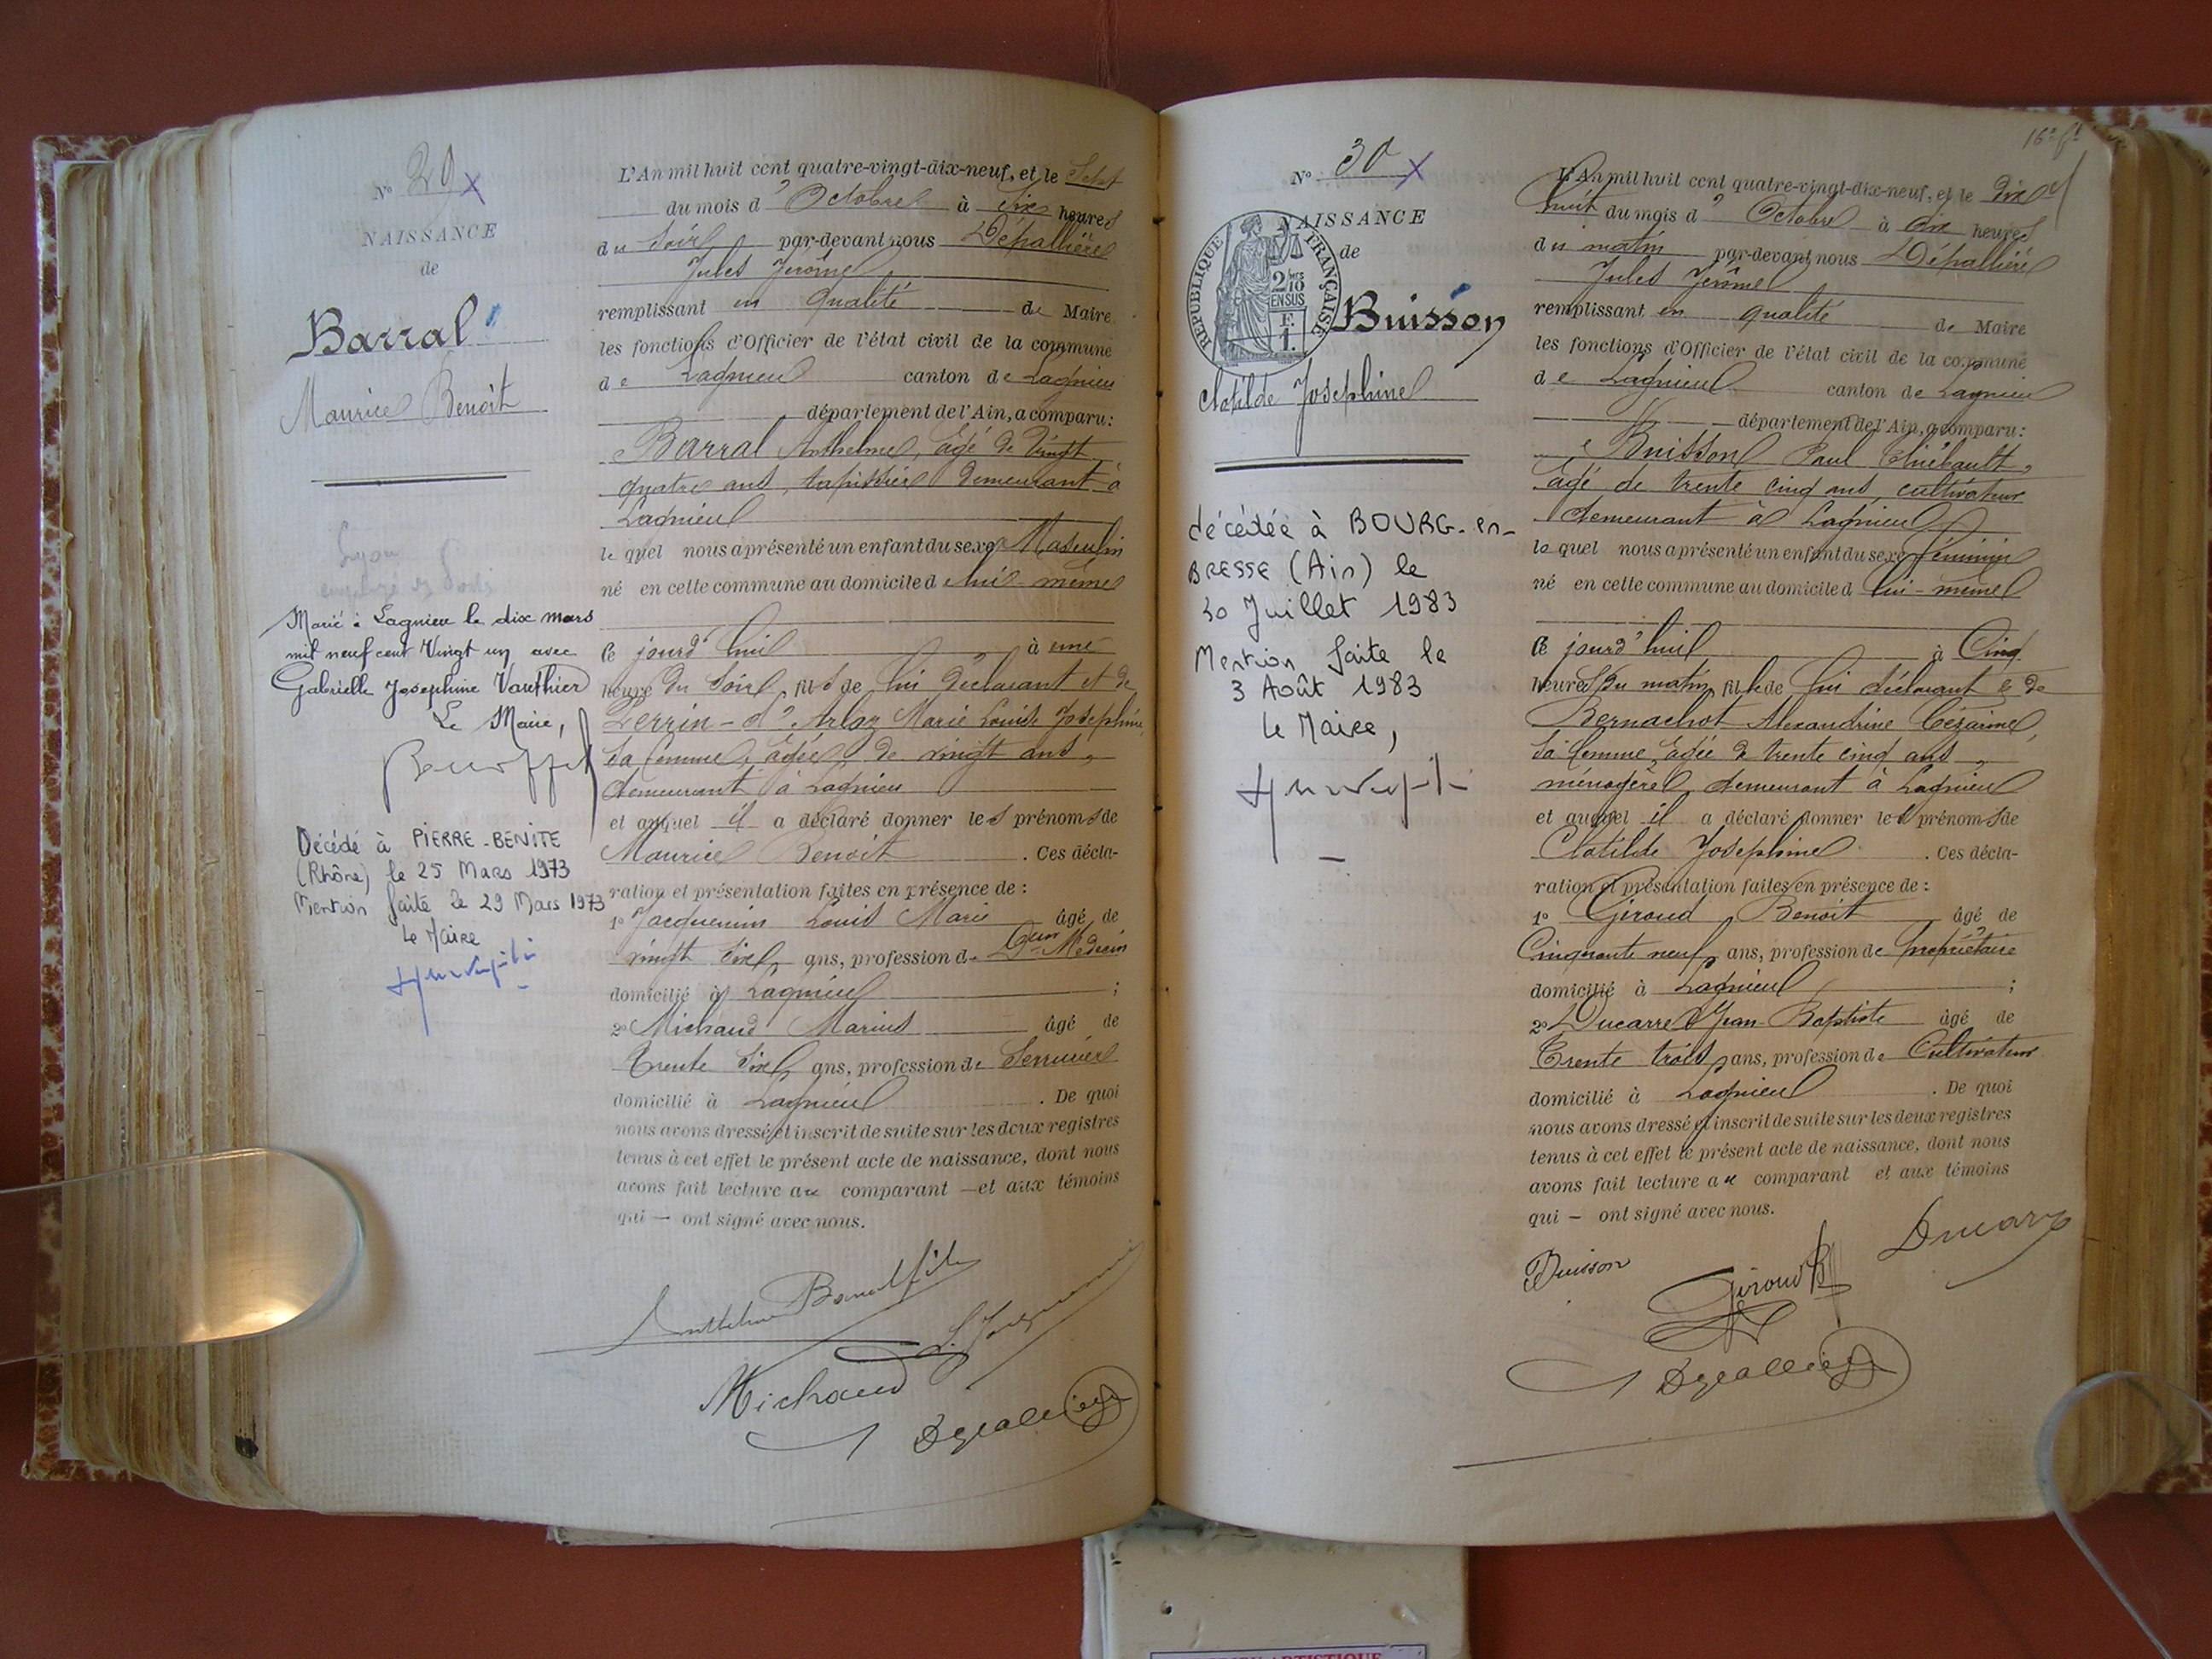 Nº 29
NAISSANCE
de
Barral
Maurice Benoit
Lyon
Marié à Lagnieu le dix mars
mil neuf cent Vingt un avec
Gabrielle Josephine Vauthier
Le Maire,
Décédé à PIERRE-BENITE
(Rhône) le 25 Mars 1973
Mention faite le 29 Mars 1973
Le Maire
L'An mil huit cent quatre-vingt-dix-neuf, et le Sept
du mois d'Octobre à six heures
du soir par-devant nous Dépallière
Jules Jérôme
remplissant en qualité de Maire
les fonctions d'Officier de l'état civil de la commune
de Lagnieu canton de Lagnieu
département de l'Ain, a comparu:
Barral Anthelme, âgé de Vingt
quatre ans, tapissier demeurant à
Lagnieu
lequel nous a présenté un enfant du sexe Masculin
né en cette commune au domicile de lui-même
ce jourd'hui à une
heure du soir, fils de lui déclarant et de
Perrin-d'Arloz Marie Louise Josephine
sa femme, âgée de vingt ans,
demeurant à Lagnieu
et auquel il a déclaré donner les prénoms de
Maurice Benoit. Ces décla-
ration et présentation faites en présence de:
1º Jacquemin Louis Marie âgé de
vingt six ans, profession de Médecin
domicilié à Lagnieu;
2º Michaud Marius âgé de
Trente six ans, profession de Serrurier
domicilié à Lagnieu. De quoi
nous avons dressé et inscrit de suite sur les deux registres
tenus à cet effet le présent acte de naissance, dont nous
avons fait lecture au comparant — et aux témoins
qui — ont signé avec nous.
Anthelme Barral fils
L. Jacquemin
Michaud
Dépallière
Nº 30
NAISSANCE
de
REPUBLIQUE FRANÇAISE
2/10
EN SUS
F.
1.
Buisson
Clotilde Josephine
décédée à BOURG-en-
BRESSE (Ain) le
30 Juillet 1983
Mention faite le
3 Août 1983
le Maire,
L'An mil huit cent quatre-vingt-dix-neuf, et le dix
huit du mois d'Octobre à dix heures
du matin par-devant nous Dépallière
Jules Jérôme
remplissant en qualité de Maire
les fonctions d'Officier de l'état civil de la commune
de Lagnieu canton de Lagnieu
département de l'Ain, a comparu:
Buisson Paul Thiébault,
âgé de trente cinq ans, cultivateur
demeurant à Lagnieu
lequel nous a présenté un enfant du sexe féminin
né en cette commune au domicile de lui-même
ce jourd'hui à Cinq
heures du matin, fille de lui déclarant & de
Bernachot Alexandrine Cézarine,
sa femme, âgée de trente cinq ans,
ménagère, demeurant à Lagnieu
et auquel il a déclaré donner les prénoms de
Clotilde Josephine. Ces décla-
ration et présentation faites en présence de:
1º Giroud Benoit âgé de
Cinquante neuf ans, profession de propriétaire
domicilié à Lagnieu;
2º Ducarre Jean-Baptiste âgé de
Trente trois ans, profession de Cultivateur
domicilié à Lagnieu. De quoi
nous avons dressé et inscrit de suite sur les deux registres
tenus à cet effet le présent acte de naissance, dont nous
avons fait lecture au comparant et aux témoins
qui — ont signé avec nous.
Buisson
Giroud B
Ducarre
Dépallière